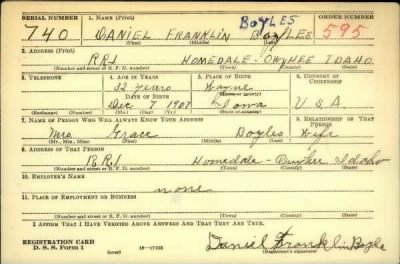 SERIAL NUMBER 1. NAME (Print) BOYLES ORDER NUMBER
740 DANIEL FRANKLIN BOYLES 595
2. ADDRESS (Print)
RR1 HOMEDALE - OWYHEE IDAHO
(Number and street or R. F. D. number) (Town) (County) (State)
3. TELEPHONE 4. AGE IN YEARS 5. PLACE OF BIRTH 6. COUNTRY OF CITIZENSHIP
32 years Wayne
DATE OF BIRTH
Dec 7 1907 Iowa U S A
7. NAME OF PERSON WHO WILL ALWAYS KNOW YOUR ADDRESS 8. RELATIONSHIP OF THAT PERSON
Mrs. Grace Boyles Wife
(Mr., Mrs., Miss) (First) (Middle) (Last)
9. ADDRESS OF THAT PERSON
RR1 Homedale - Owyhee Idaho
(Number and street or R. F. D. number) (Town) (County) (State)
10. EMPLOYER'S NAME
none
11. PLACE OF EMPLOYMENT OR BUSINESS
(Number and street or R. F. D. number) (Town) (County) (State)
I AFFIRM THAT I HAVE VERIFIED ABOVE ANSWERS AND THAT THEY ARE TRUE.
REGISTRATION CARD
D. S. S. Form 1 (over) Daniel Franklin Boyle
(Registrant's signature)